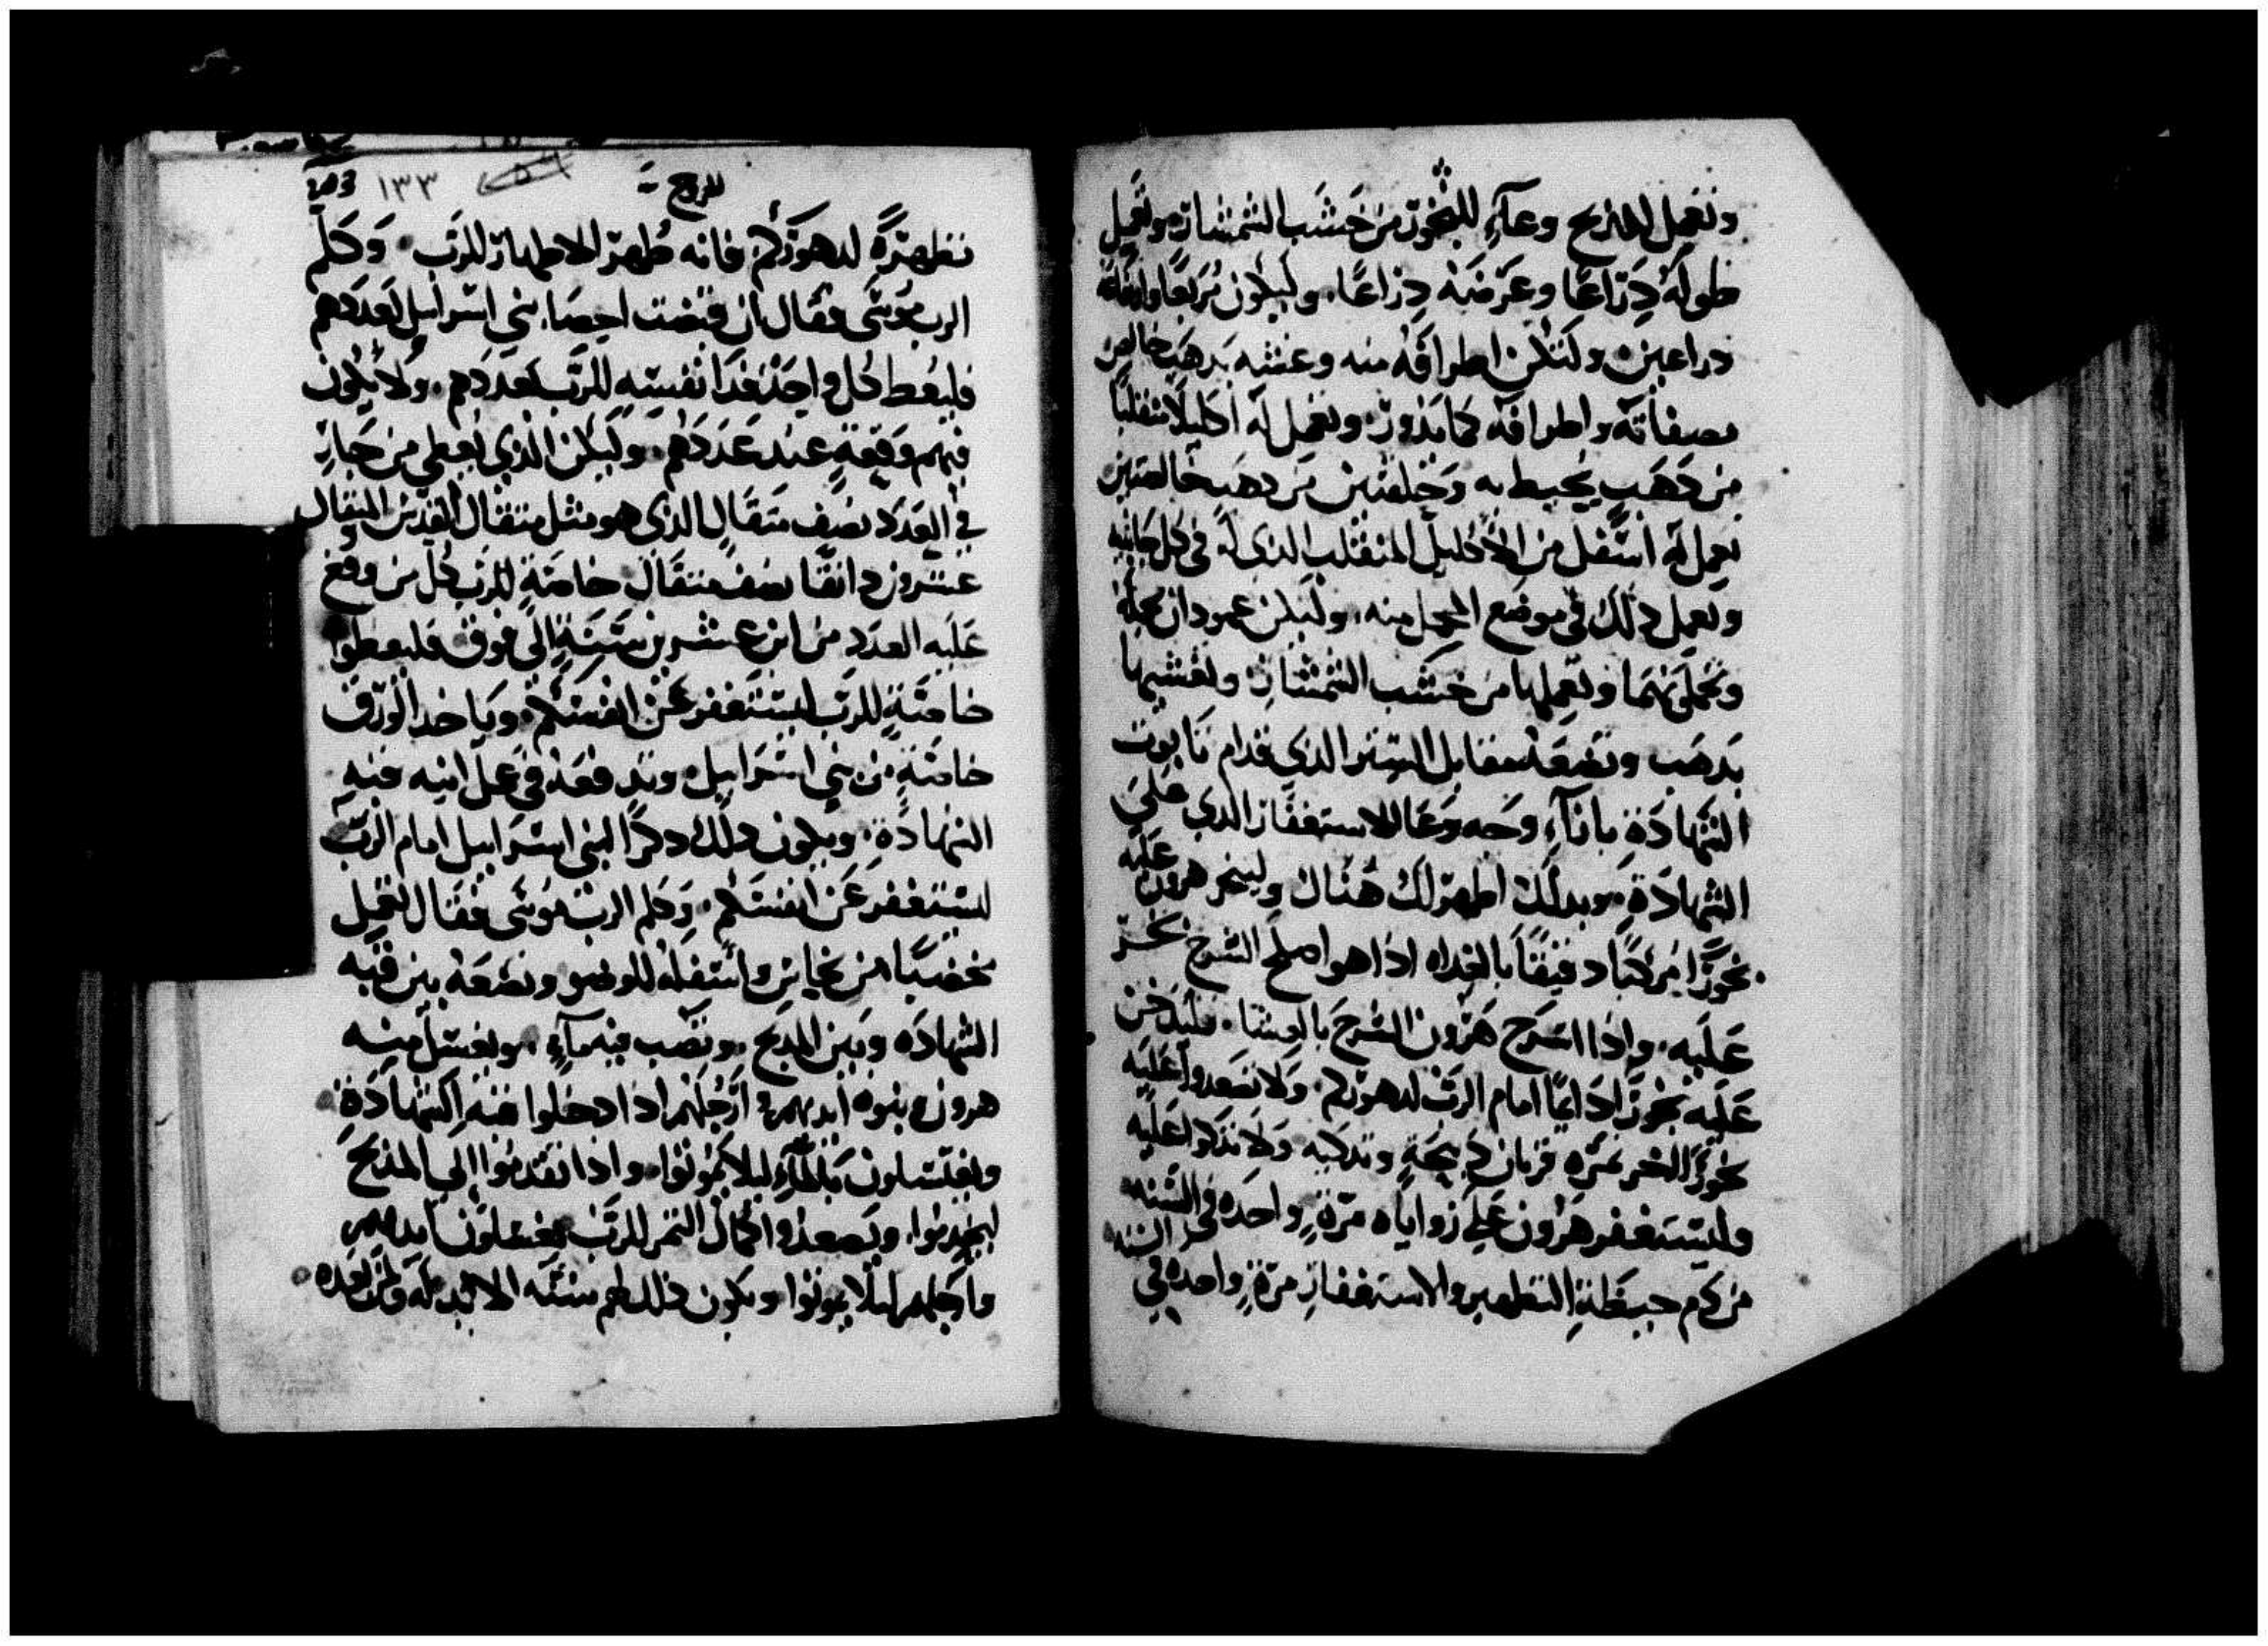 وتعمل للمذبح وعآءً للبخور من خشب الشمشار وتعمل
طوله دراعًا وعرضه دراعًا وليكون مربعًا وارتفاعه
دراعين ولتكن اطرافه منه وغشه بدهب خالص
بصفاته واطرافه كما يدور وتعمل له اكليلًا منقلبًا
من دهب يحيط به وحلقتين من دهب خالصتين
تعمل له اسفل من الاكليل المنقلب الدى له فى كل جانبيه
وتعمل دلك فى موضع المحمل منه وليكن عمودان
وتعملها من خشب الشمشار وتغشيها
بدهب وتضعه مقابل الستر الدى قدام تابوت
الشهادة بازآء وجه وعا الاستغفار الدى على
الشهادة وبدلك اظهر لك هناك وليبخر هرون عليه
بخورًا مركبًا دقيقًا بالغداه اذا هو اصلح السرج يبخر
عليه واذا اسرج هرون السرج بالعشا فليدخن
عليه بخورًا دايمًا امام الرب لدهوركم ولا تصعدوا عليه
بخورًا اخر غيره قربان دبيحة وتدكيه ولا تدكوا عليه
وليستغفر هرون على زواياه مرة واحده فى السنه
من دم حيطة التطهير والاستغفار مرة واحده فى السنه
للخروج
١٣٣
تطهره لدهوركم فانه طهر الاطهار للرب وكلم
الرب موسى فقال ان قبضت احصا بنى اسرايل لعددهم
فليعط كل واحد فدا نفسه للرب لعددهم ولا يكون
فيهم وقيعة عند عددهم وليكن الذى يعطى من جاز
فى العدد نصف متقال الذى هو مثل متقال القدس المتقال
عشرون دانقًا نصف متقال خاصة للرب كل من وقع
عليه العدد من ابن عشرين سنة الى فوق فليعطوا
خاصة للرب ليستغفر عن انفسكم وياخد الورق
خاصة من بنى اسرايل وتدفعه فى عمل انيه قبه
الشهادة ويكون دلك دكرًا لبنى اسرايل امام الرب
ليستغفر عن انفسكم وكلم الرب موسى فقال تعمل
مخضبًا من نحاس واسفله للوضو وتضعه بين قبه
الشهاده وبين المدبح وتصب فيه مآء ويغسل منه
هرون وبنوه ايديهم وارجلهم ادا دخلوا قبه الشهادة
ويغتسلون بالمآء ليلا يموتوا وادا تقدموا الى المذبح
ليخدموا ويصعدوا اكمال الثمر للرب يغسلون ايديهم
وارجلهم ليلا يموتوا ويكون ذلك لهم سنه الابد له ولمن بعده